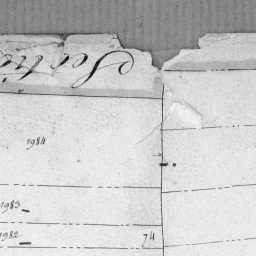 1984
1983
1982 74